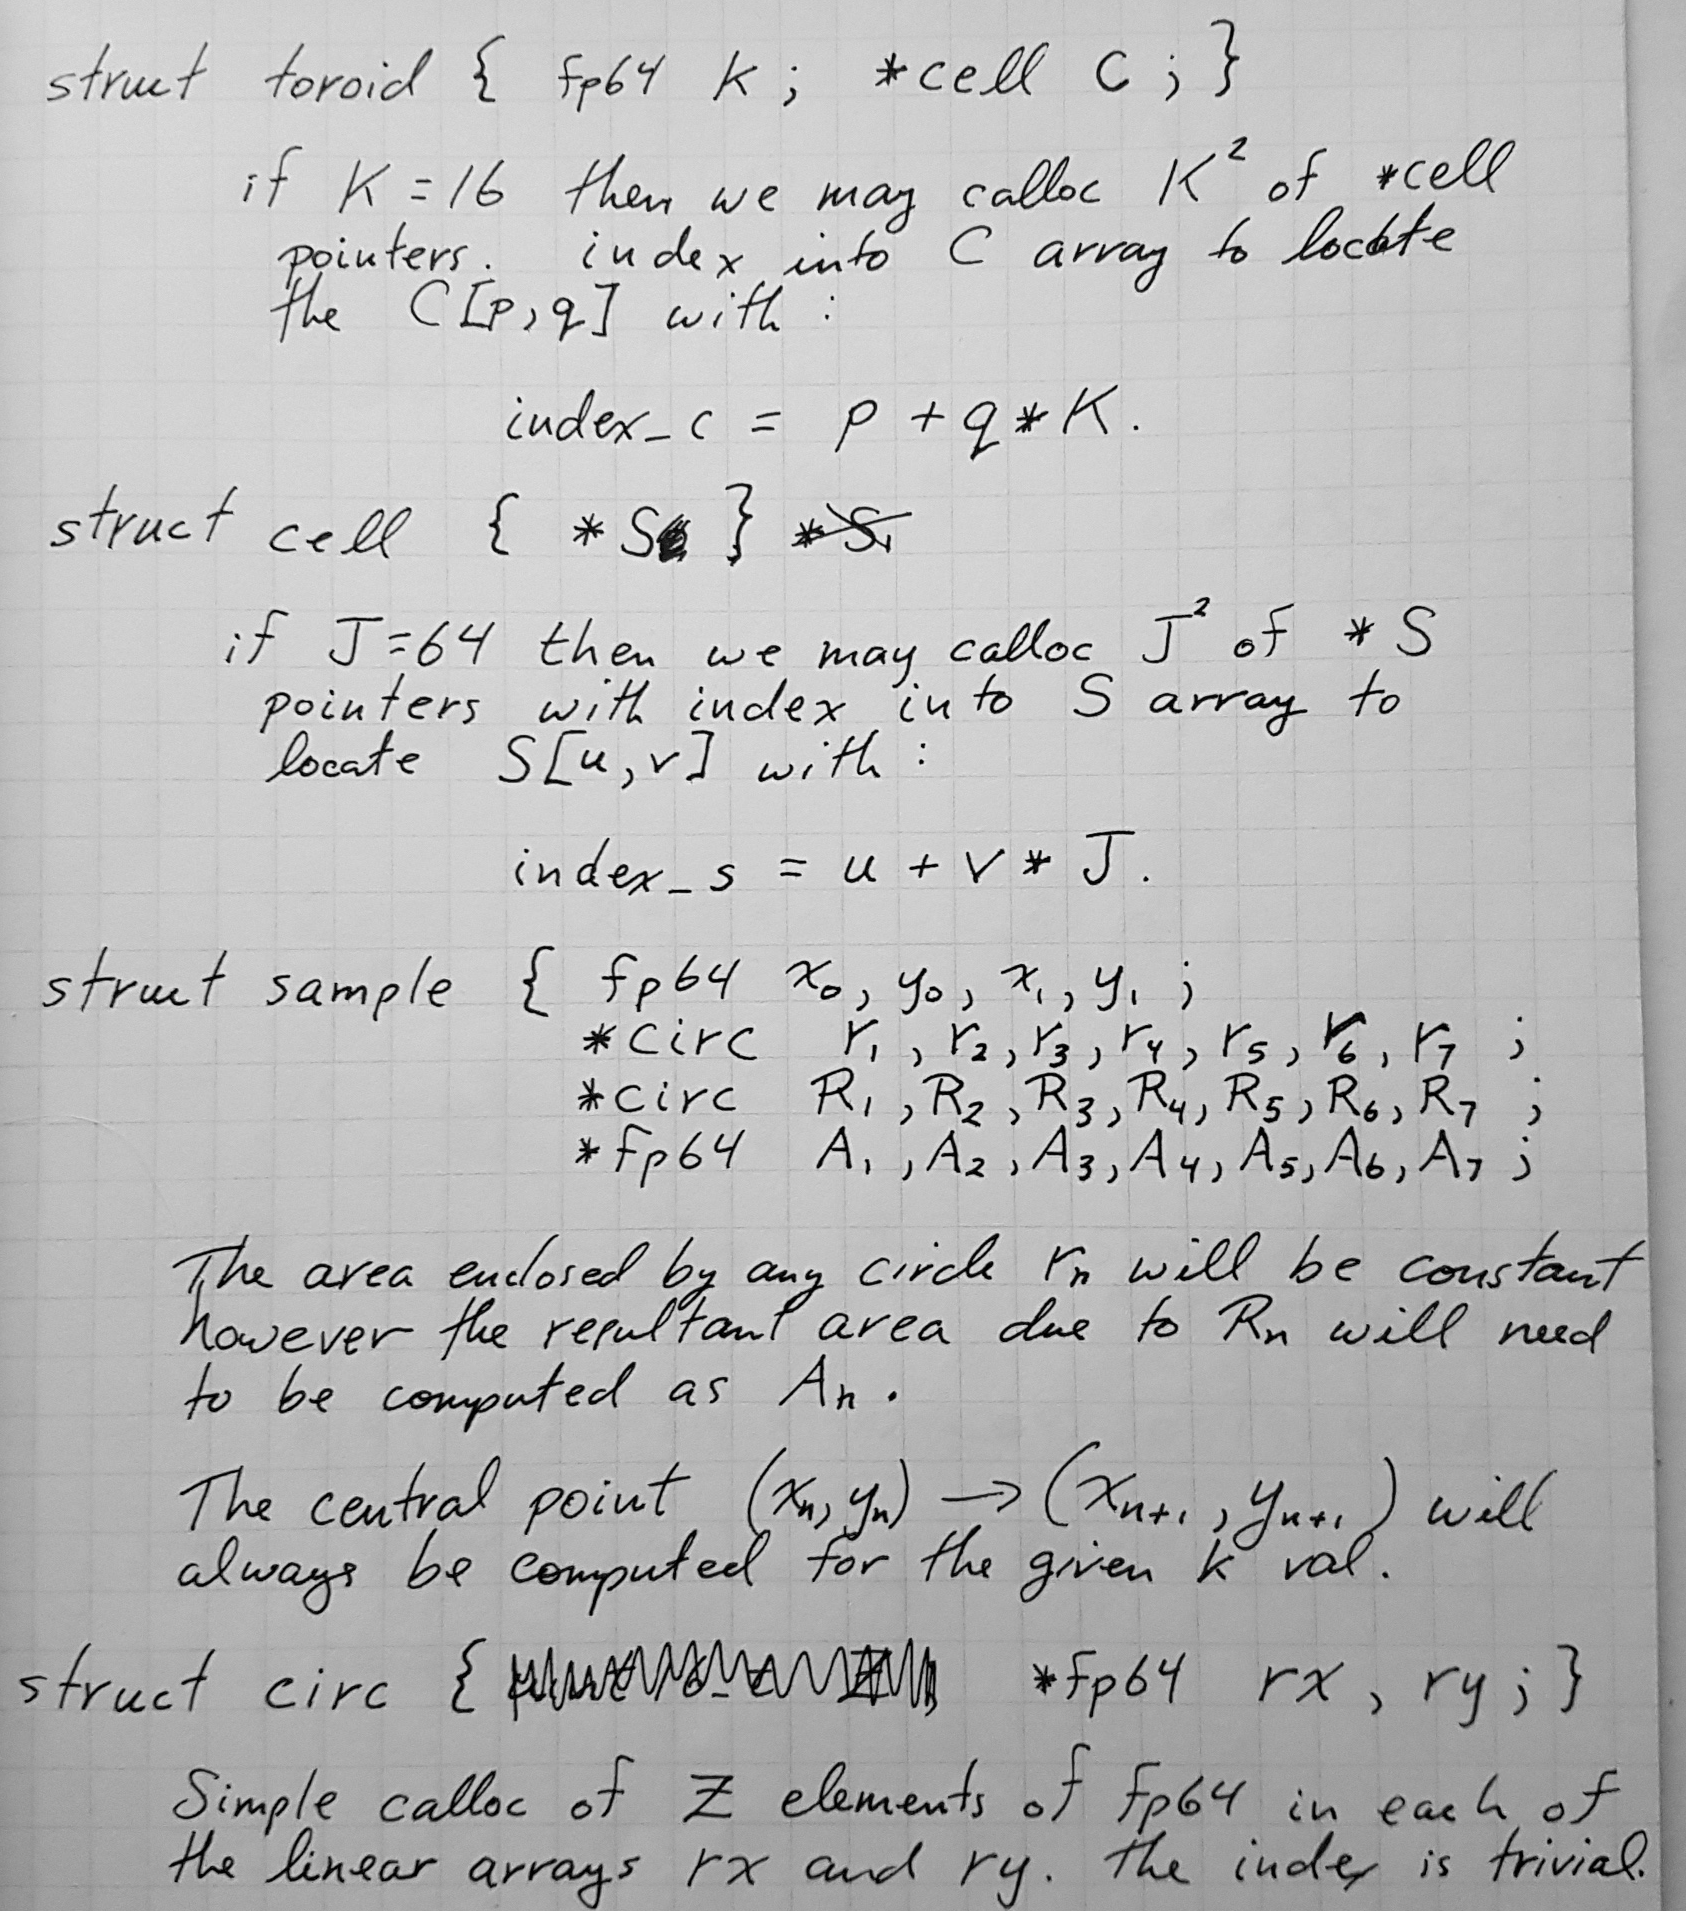 struct toroid { fp64 k ; *cell C ; }
if K = 16 then we may calloc K² of *cell
pointers. index into C array to locate
the C[p,q] with :
index_c = p + q * K.
struct cell { *S } *S,
if J = 64 then we may calloc J² of *S
pointers with index into S array to
locate S[u,v] with :
index_s = u + v * J.
struct sample { fp64 x₀, y₀, x₁, y₁ ;
*circ r₁, r₂, r₃, r₄, r₅, r₆, r₇ ;
*circ R₁, R₂, R₃, R₄, R₅, R₆, R₇ ;
*fp64 A₁, A₂, A₃, A₄, A₅, A₆, A₇ ;
The area enclosed by any circle rₙ will be constant
however the resultant area due to Rₙ will need
to be computed as Aₙ.
The central point (xₙ, yₙ) → (xₙ₊₁, yₙ₊₁) will
always be computed for the given k val.
struct circ { *fp64 rx, ry ; }
Simple calloc of Z elements of fp64 in each of
the linear arrays rx and ry. The index is trivial.